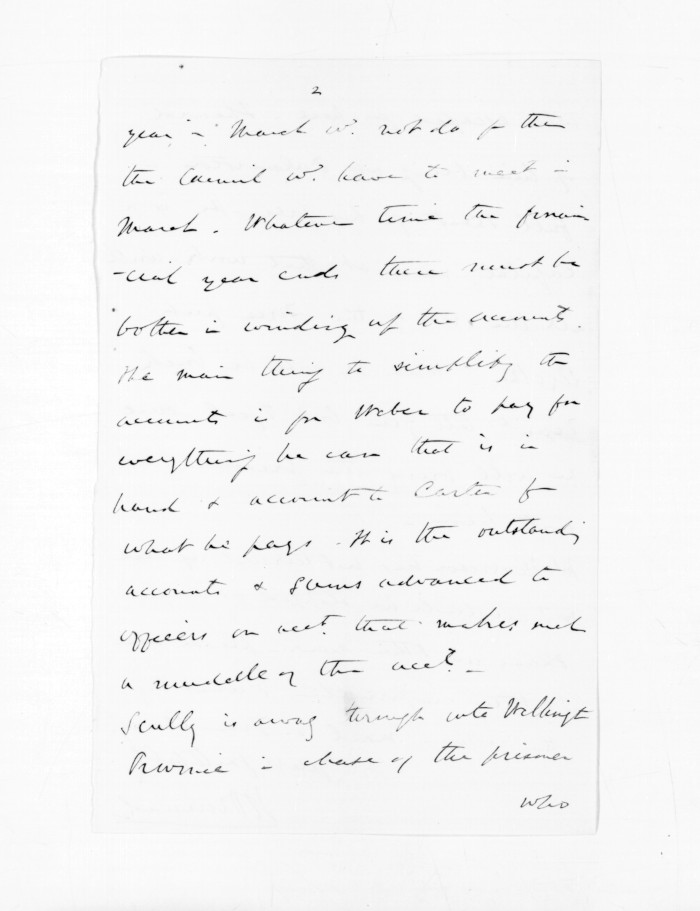 2
year in March wd. not do for then
the Council wd. have to meet in
March. Whatever time the finan
-cial year ends there must be
bother in winding up the accounts.
The main thing to simplify the
accounts is for Weber to pay for
everything he can that is in
hand & account to Carter for
what he pays. It is the outstanding
accounts & sums advanced to
officers on acct. that makes such
a muddle of the acct. –
Scully is away through into Wellingt
Province in chase of the prisoner
who